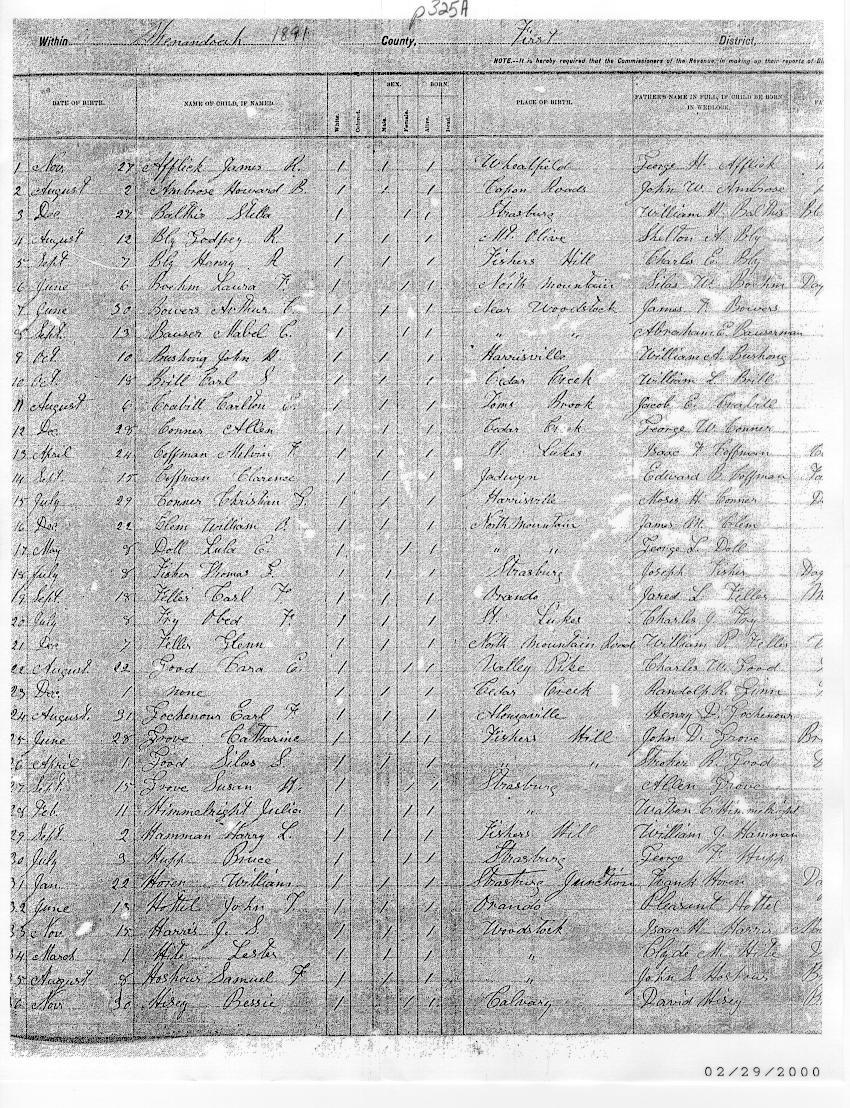 p325A
Within Shenandoah 1891 County, First District,
NOTE.--It is hereby required that the Commissioners of the Revenue, in making up their reports of Bi
SEX. BORN.
DATE OF BIRTH. NAME OF CHILD, IF NAMED. White. Colored. Male. Female. Alive. Dead. PLACE OF BIRTH. FATHER'S NAME IN FULL, IF CHILD BE BORN IN WEDLOCK. FA
1 Nov. 27 Afflick James R. / / / Wheatfield George H. Afflick
2 August 2 Ambrose Howard B. / / / Capon Roads John W. Ambrose
3 Dec 27 Balthis Stella / / / Strasburg William H. Balthis Bl
4 August 12 Bly Godfrey R. / / / Mt. Olive Shelton A. Bly
5 Sept 7 Bly Henry R / / / Fishers Hill Charles E. Bly
6 June 6 Boehm Laura F. / / / North Mountain Silas W. Boehm Day
7 June 30 Bowers Arthur C. / / / Near Woodstock James F. Bowers
8 Sept. 13 Bauser Mabel C. / / / " " Abraham E. Bauserman
9 Oct. 10 Bushong John H. / / / Harrisville William A. Bushong
10 Oct. 18 Brill Earl S / / / Cedar Creek William L. Brill
11 August 6 Crabill Carlton E. / / / Toms Brook Jacob E. Crabill
12 Dec. 28 Conner Allen / / / Cedar Creek George W. Conner
13 April 24 Coffman Melvin F. / / / St. Lukes Isaac F. Coffman
14 Sept. 15 Coffman Clarence / / / Jadwyn Edward B. Coffman
15 July 29 Conner Christian G. / / / Harrisville Moses H. Conner
16 Dec 22 Clem William P. / / / North Mountain James M. Clem
17 May 8 Doll Lula C. / / / " " George L. Doll
18 July 8 Fisher Thomas G. / / / Strasburg Joseph Fisher Day
19 Sept. 18 Feller Carl F. / / / Orando Jared L. Feller
20 July 8 Fry Obed F. / / / St. Lukes Charles J. Fry
21 Dec 7 Feller Glenn / / / North Mountain Road William P. Feller
22 August 22 Good Cara E. / / / Valley Pike Charles W. Good
23 Dec. 1 none / / / Cedar Creek Randolph R. Ginn
24 August 31 Gochenour Earl F. / / / Alonzaville Henry D. Gochenour
25 June 28 Grove Catharine / / / Fishers Hill John D. Grove
26 April 1 Good Silas S. / / / " " Strother R. Good
27 Sept. 15 Grove Susan H. / / / Strasburg Allen Grove
28 Feb. 11 Himmelright Julia / / / " Walton C. Himmelright
29 Sept 2 Hamman Harry L. / / / Fishers Hill William J. Hamman
30 July 3 Hupp Bruce / / / Strasburg George F. Hupp
31 Jan. 22 William / / / Strasburg Junction Frank
32 June 18 Hottel John T. / / / Orando Pleasant Hottel
33 Nov. 15 Harris J. S. / / / Woodstock Isaac H. Harris
34 March 1 Hite Lester / / / " Clyde M. Hite
35 August 8 Hoshour Samuel F / / / " John S. Hoshour
36 Nov 30 Hisey Bessie / / / Calvary David Hisey
02/29/2000